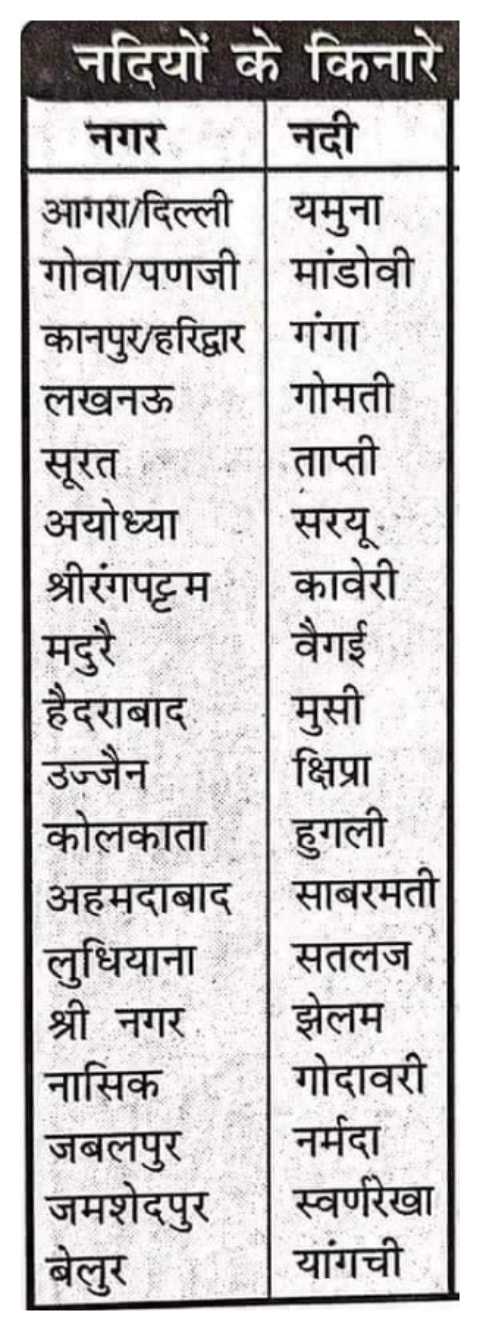 नदियों के किनारे
नगर नदी
आगरा/दिल्ली यमुना
गोवा/पणजी मांडोवी
कानपुर/हरिद्वार गंगा
लखनऊ गोमती
सूरत ताप्ती
अयोध्या सरयू
श्रीरंगपट्टम कावेरी
मदुरै वैगई
हैदराबाद मुसी
उज्जैन क्षिप्रा
कोलकाता हुगली
अहमदाबाद साबरमती
लुधियाना सतलज
श्री नगर झेलम
नासिक गोदावरी
जबलपुर नर्मदा
जमशेदपुर स्वर्णरेखा
बेलुर यांगची